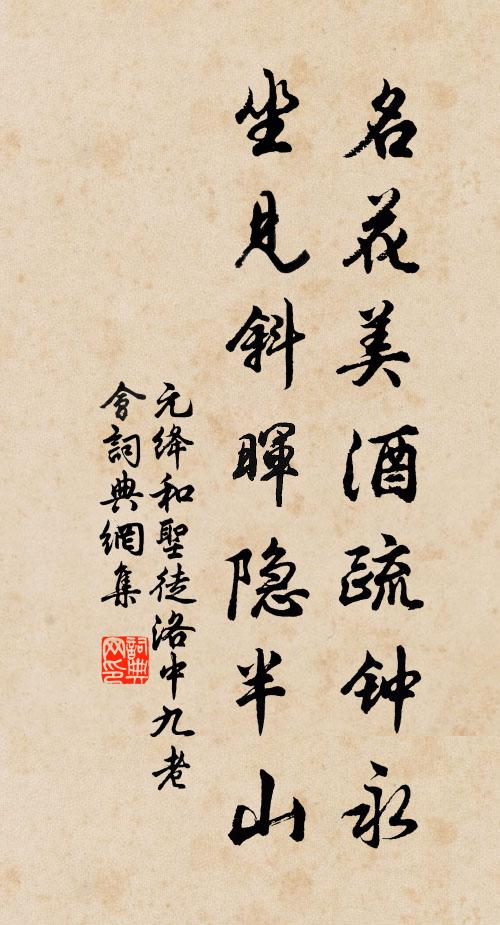 名花美酒疏钟永
坐見斜暉隐半山
元絳和聖徒洛中九老
會詞典網集
詞典网印